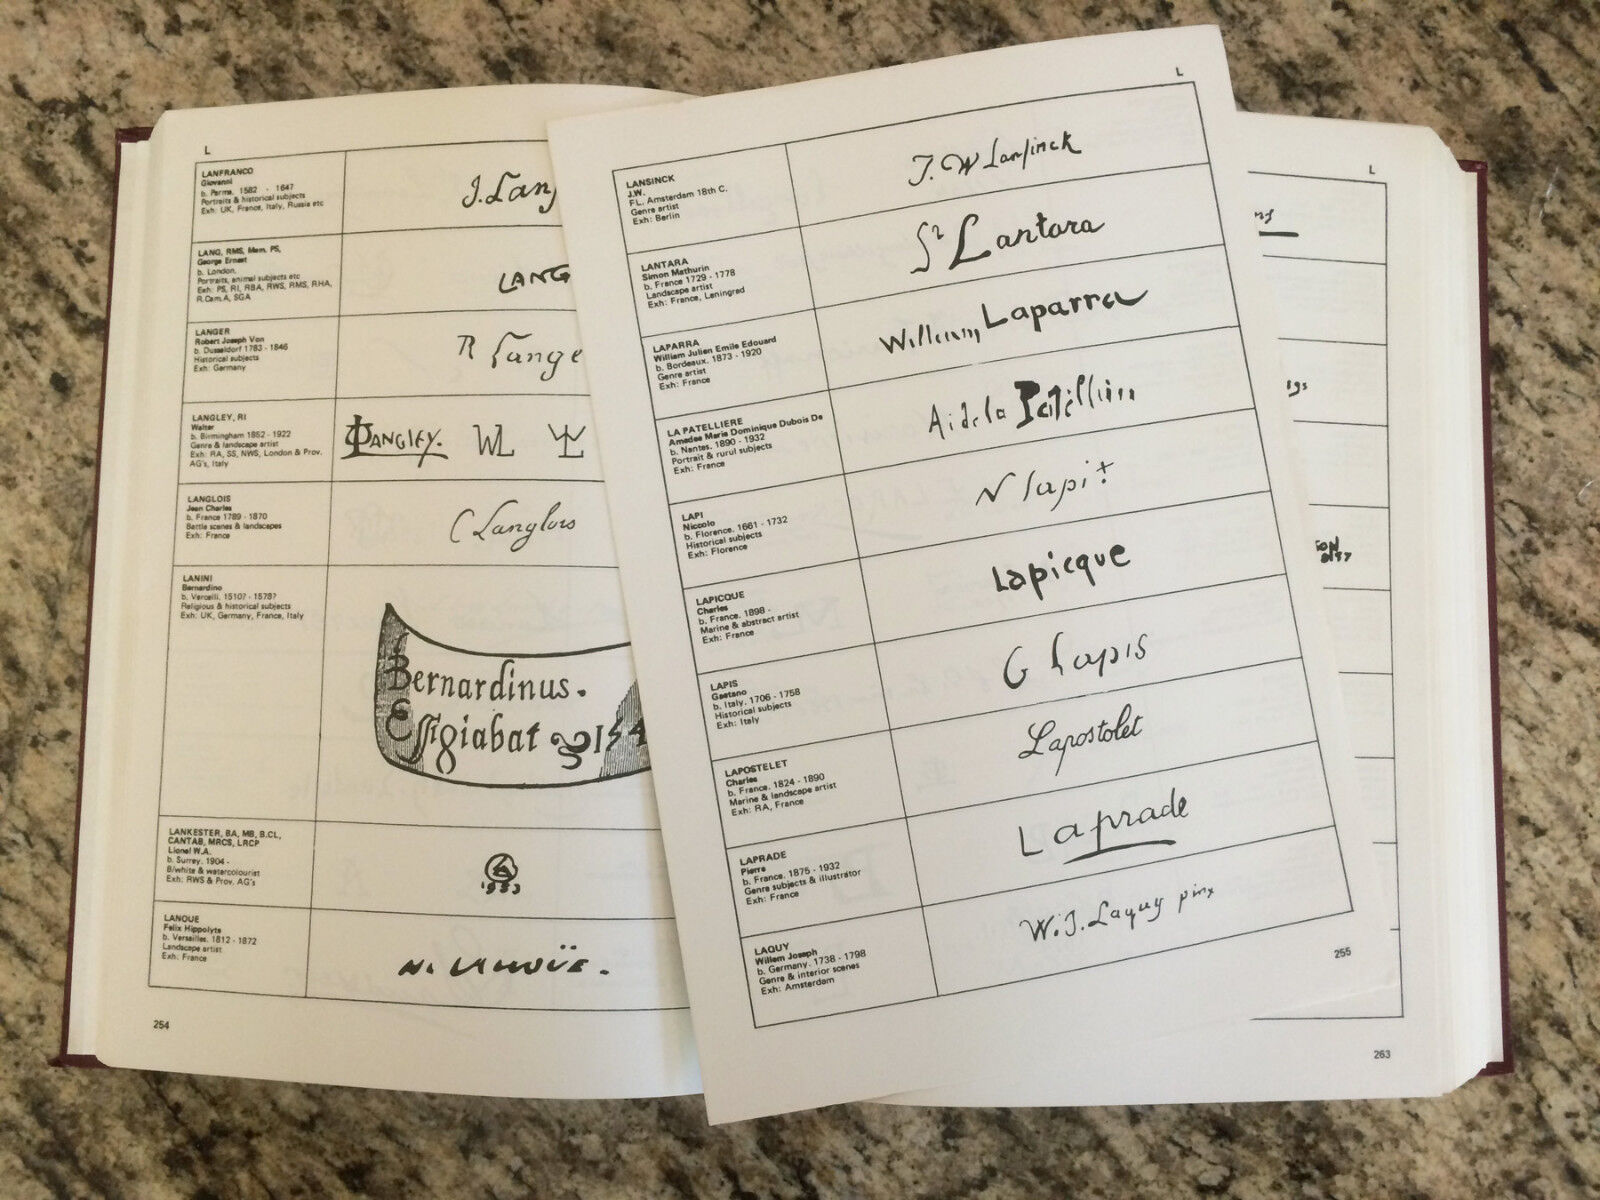 L
LANFRANCO
Giovanni
b. Parma. 1582 - 1647
Portraits & historical subjects
Exh: UK, France, Italy, Russia etc
J. Lan
LANG, RMS, Mem. PS,
George Ernest
b. London.
Portraits, animal subjects etc
Exh: PS, RI, RBA, RWS, RMS, RHA,
R.Cam.A, SGA
LANG
LANGER
Robert Joseph Von
b. Dusseldorf 1783 - 1846
Historical subjects
Exh: Germany
R Lange
LANGLEY, RI
Walter
b. Birmingham 1852 - 1922
Genre & landscape artist
Exh: RA, SS, NWS, London & Prov.
AG's, Italy
LANGLEY. WL
LANGLOIS
Jean Charles
b. France 1789 - 1870
Battle scenes & landscapes
Exh: France
C Langlois
LANINI
Bernardino
b. Vercelli. 1510? - 1578?
Religious & historical subjects
Exh: UK, Germany, France, Italy
Bernardinus.
Effigiabat 154
LANKESTER, BA, MB, B.CL,
CANTAB, MRCS, LRCP
Lionel W.A.
b. Surrey. 1904 -
B/white & watercolourist
Exh: RWS & Prov. AG's
1953
LANOUE
Felix Hippolyte
b. Versailles. 1812 - 1872
Landscape artist
Exh: France
H. LANOÜE.
254
L
LANSINCK
J.W.
FL. Amsterdam 18th C.
Genre artist
Exh: Berlin
J. W Lansinck
LANTARA
Simon Mathurin
b. France 1729 - 1778
Landscape artist
Exh: France, Leningrad
Lantara
LAPARRA
William Julien Emile Edouard
b. Bordeaux. 1873 - 1920
Genre artist
Exh: France
William Laparra
LA PATELLIERE
Amedee Marie Dominique Dubois De
b. Nantes. 1890 - 1932
Portrait & rurul subjects
Exh: France
A. de la Patellière
LAPI
Niccolo
b. Florence. 1661 - 1732
Historical subjects
Exh: Florence
N lapi
LAPICQUE
Charles
b. France. 1898 -
Marine & abstract artist
Exh: France
Lapicque
LAPIS
Gaetano
b. Italy. 1706 - 1758
Historical subjects
Exh: Italy
G Lapis
LAPOSTELET
Charles
b. France. 1824 - 1890
Marine & landscape artist
Exh: RA, France
Lapostolet
LAPRADE
Pierre
b. France. 1875 - 1932
Genre subjects & illustrator
Exh: France
Laprade
LAQUY
Willem Joseph
b. Germany. 1738 - 1798
Genre & interior scenes
Exh: Amsterdam
W. J. Laquy pinx
255
L
263